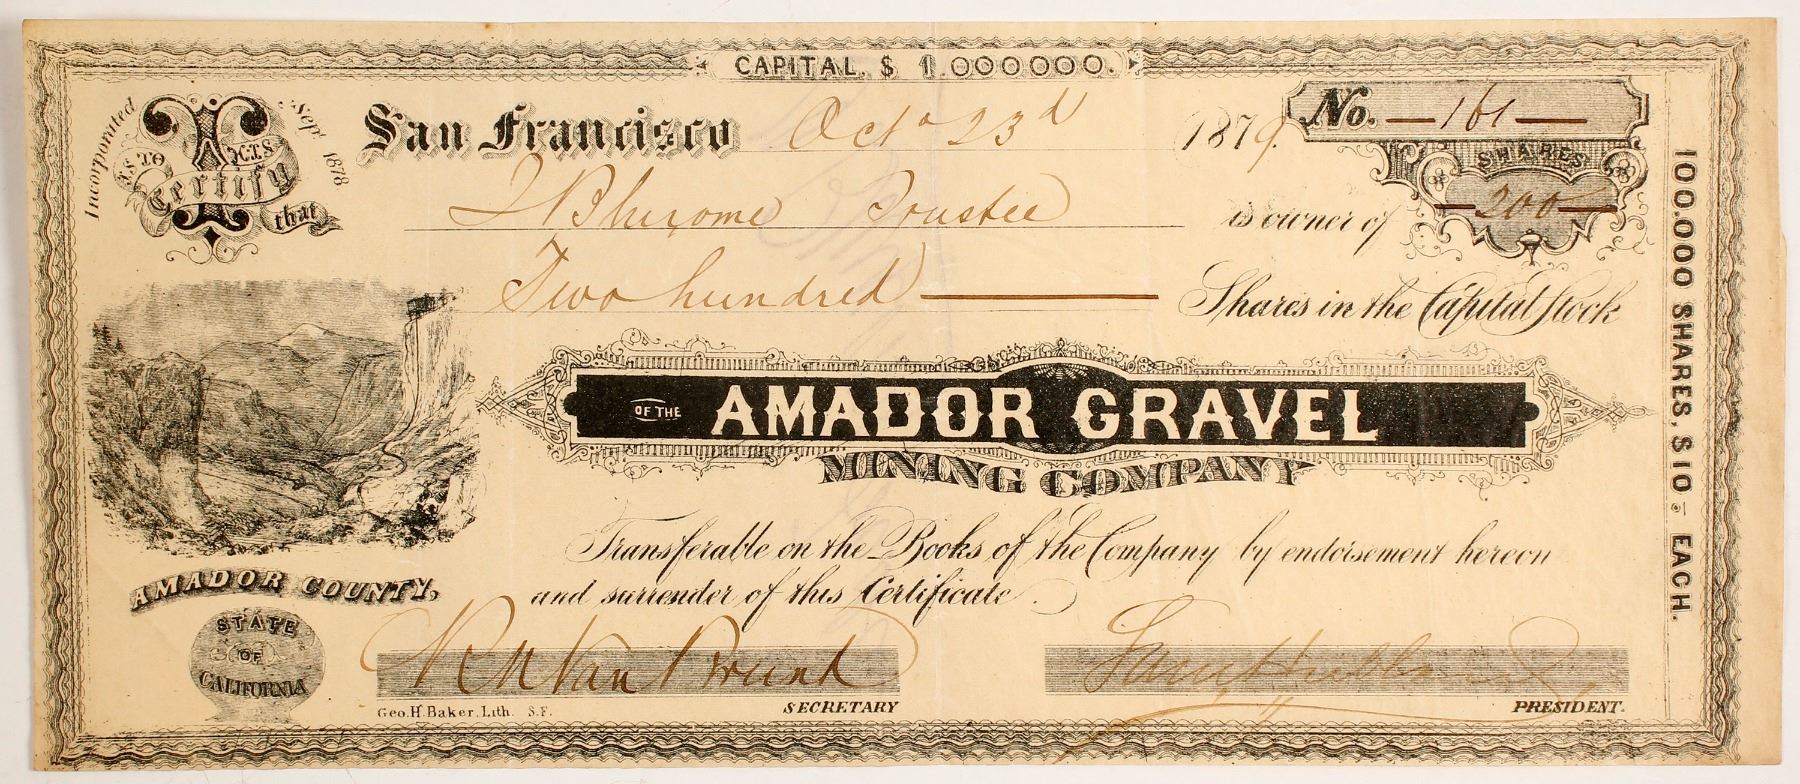 CAPITAL, $ 1.000000.
Incorporated Sept 1878
THIS IS TO Certify that
San Francisco Oct. 23d 1879.
No. 161
SHARES
200
Trustee is owner of
Two hundred Shares in the Capital Stock
OF THE AMADOR GRAVEL
MINING COMPANY
Transferable on the Books of the Company by endorsement hereon
and surrender of this Certificate.
AMADOR COUNTY,
STATE
OF
CALIFORNIA
R N Van Brunt
SECRETARY
Sam Hubbard
PRESIDENT.
Geo. H. Baker, Lith. S.F.
100,000 SHARES, $10. EACH.